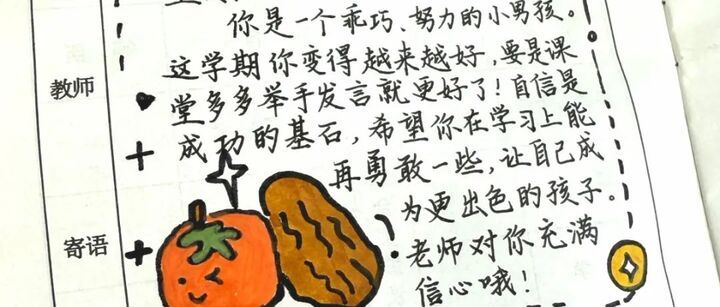 你是一个乖巧、努力的小男孩。
这学期你变得越来越好，要是课
堂多多举手发言就更好了！自信是
成功的基石，希望你在学习上能
再勇敢一些，让自己成
为更出色的孩子。
老师对你充满
信心哦！
教师
寄语